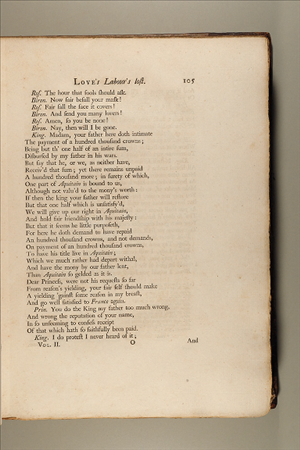 LOVE's Labour's lost. 105
Ros. The hour that fools should ask.
Biron. Now fair befall your mask!
Ros. Fair fall the face it covers!
Biron. And send you many lovers!
Ros. Amen, so you be none!
Biron. Nay, then will I be gone.
King. Madam, your father here doth intimate
The payment of a hundred thousand crowns;
Being but th' one half of an intire sum,
Disbursed by my father in his wars.
But say that he, or we, as neither have,
Receiv'd that sum; yet there remains unpaid
A hundred thousand more; in surety of which,
One part of Aquitain is bound to us,
Although not valu'd to the mony's worth:
If then the king your father will restore
But that one half which is unsatisfy'd,
We will give up our right in Aquitain,
And hold fair friendship with his majesty:
But that it seems he little purposeth,
For here he doth demand to have repaid
An hundred thousand crowns, and not demands,
On payment of an hundred thousand crowns,
To have his title live in Aquitain;
Which we much rather had depart withal,
And have the mony by our father lent,
Than Aquitain so gelded as it is.
Dear Princess, were not his requests so far
From reason's yielding, your fair self should make
A yielding 'gainst some reason in my breast,
And go well satisfied to France again.
Prin. You do the King my father too much wrong,
And wrong the reputation of your name,
In so unseeming to confess receipt
Of that which hath so faithfully been paid.
King. I do protest I never heard of it;
VOL. II. O And